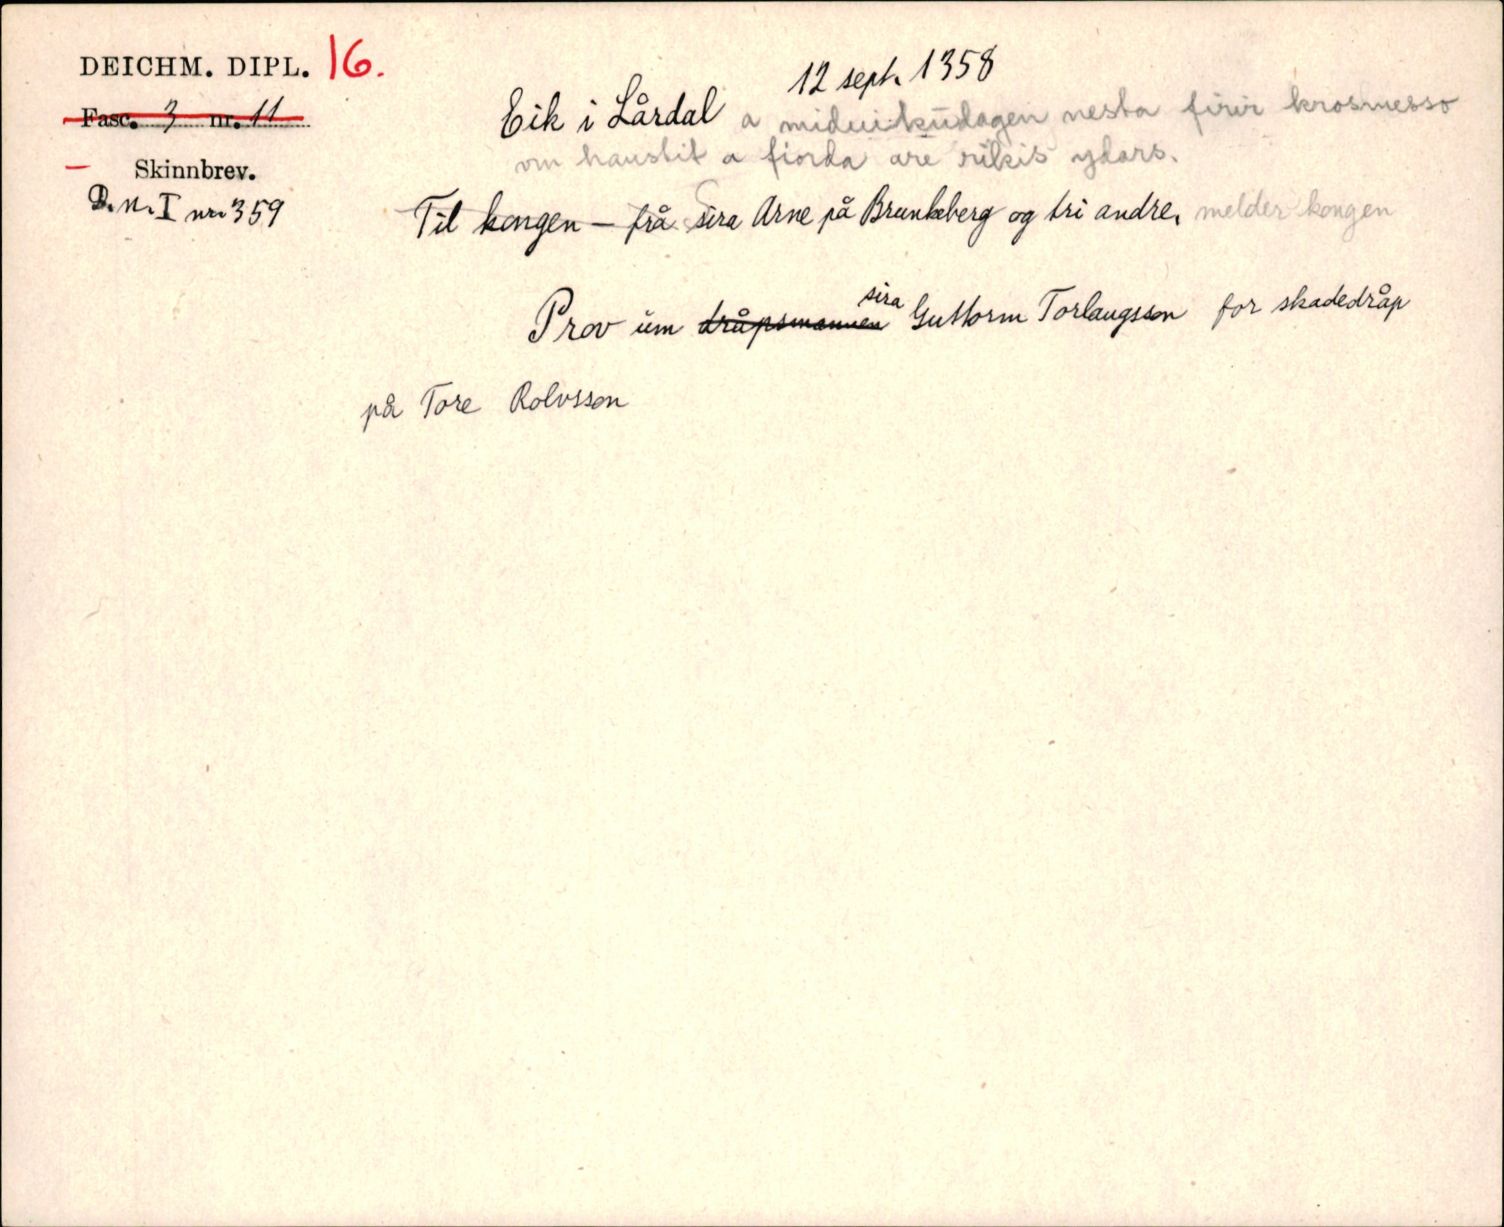 DEICHM. DIPL. 16.
12 sept. 1358
Fasc. 3 nr. 11
Eik i Lårdal a miduikudagen nesta firir krosmesso
om haustit a fiorda are rikis ydars.
Skinnbrev.
D.N. I nr. 359
Til kongen – frå Sira Arne på Brunkeberg og tri andre, melder kongen
Prov um dråpsmannen sira Guttorm Torlaugsson for skadedråp
på Tore Rolvsson